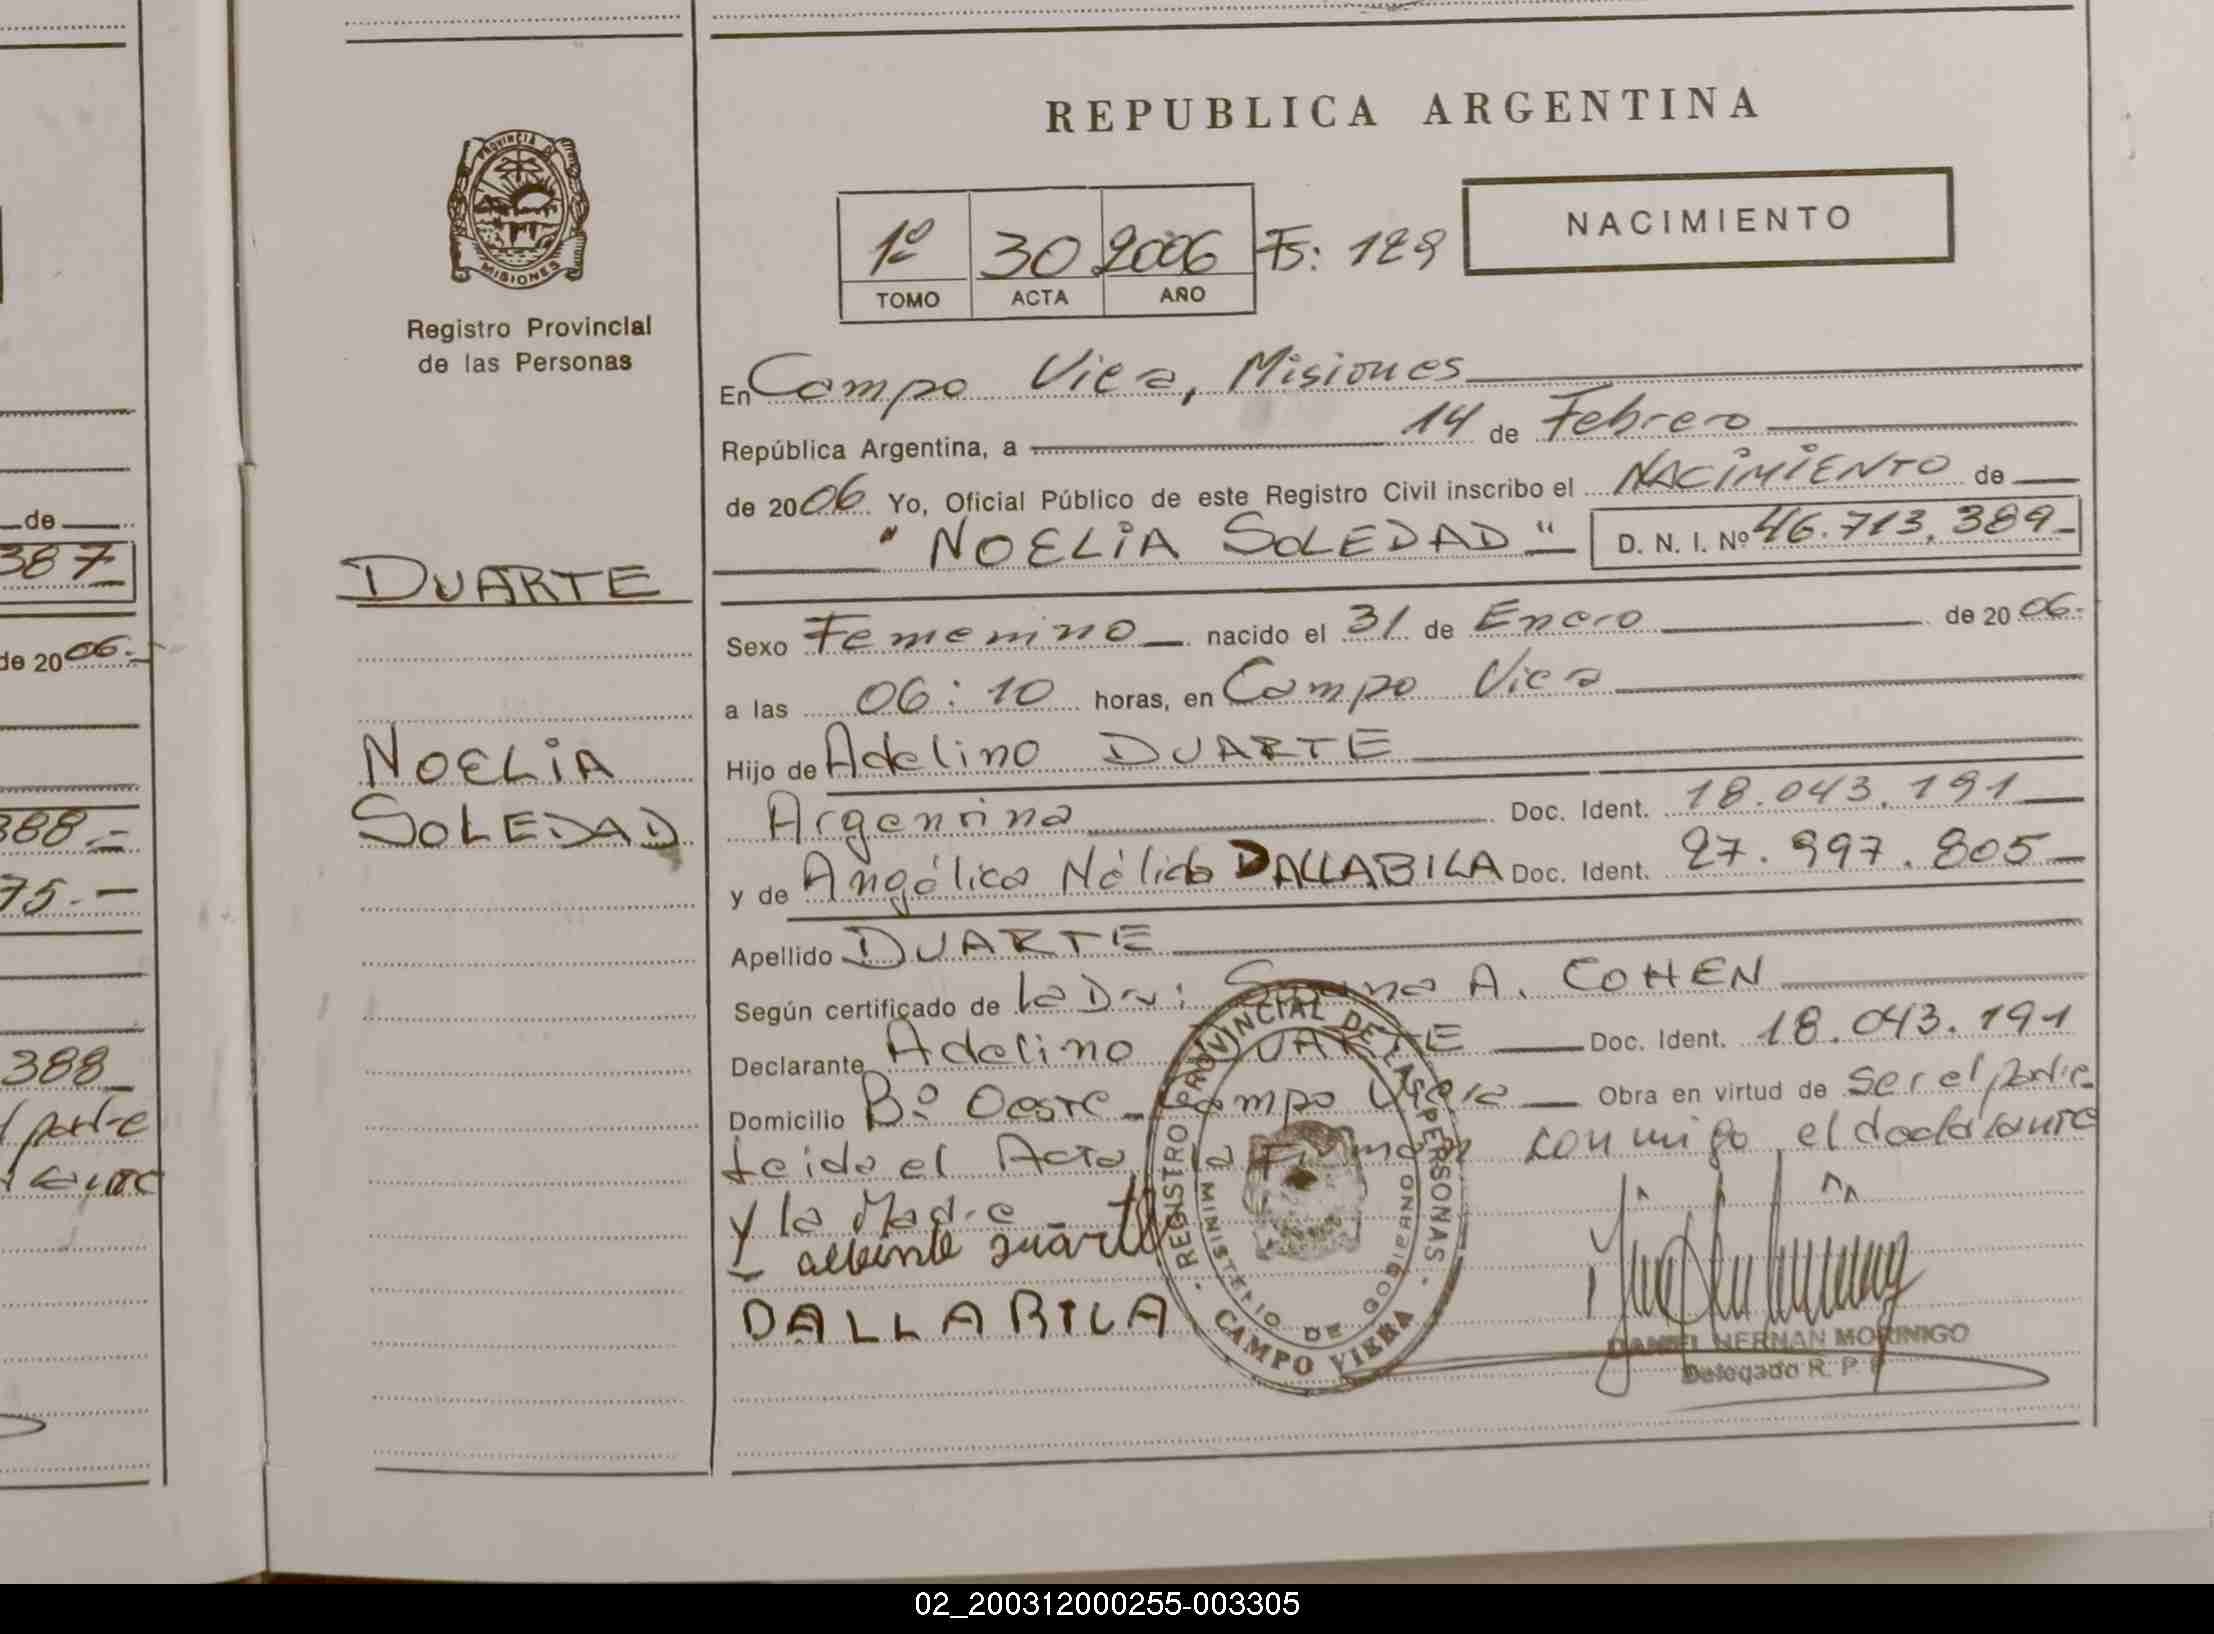 REPUBLICA ARGENTINA
PROVINCIA DE
MISIONES
Registro Provincial
de las Personas
1º 30 2006 Fs: 129
TOMO ACTA AÑO
NACIMIENTO
En Campo Viera, Misiones
República Argentina, a 14 de Febrero
de 2006 Yo, Oficial Público de este Registro Civil inscribo el NACIMIENTO de
"NOELIA SOLEDAD" D. N. I. Nº 46.713.389-
DUARTE
Sexo Femenino nacido el 31 de Enero de 2006.-
a las 06:10 horas, en Campo Viera
NOELIA
SOLEDAD
Hijo de Adelino DUARTE
Argentina Doc. Ident. 18.043.191
y de Angélica Nélida DALLABILA Doc. Ident. 27.997.805
Apellido DUARTE
Según certificado de la Dra: A. COHEN
Declarante Adelino DUARTE Doc. Ident. 18.043.191
Domicilio Bº Oeste - Campo Viera Obra en virtud de ser el padre
Leida el Acta, la Firman conmigo, el declarante
y la Madre
DALLABILA
REGISTRO PROVINCIAL DE LAS PERSONAS
MINISTERIO DE GOBIERNO
CAMPO VIERA
DANIEL HERNAN MORINIGO
Delegado R. P. P.
de
387
de 2006.-
388.-
75.-
388
padre
02_200312000255-003305